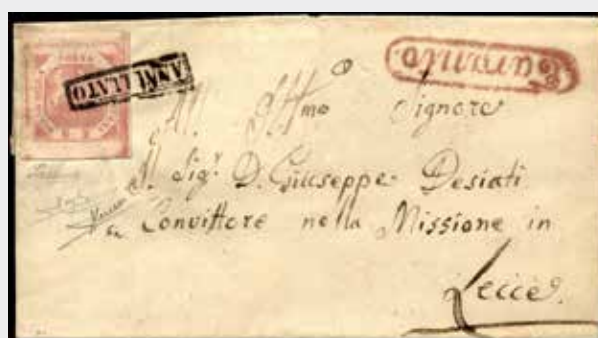 ANNULLATO
Taranto.
All' Ill.mo Signore
Il Sig.r D. Giuseppe Desiati
Convittore nella Missione in
Lecce.